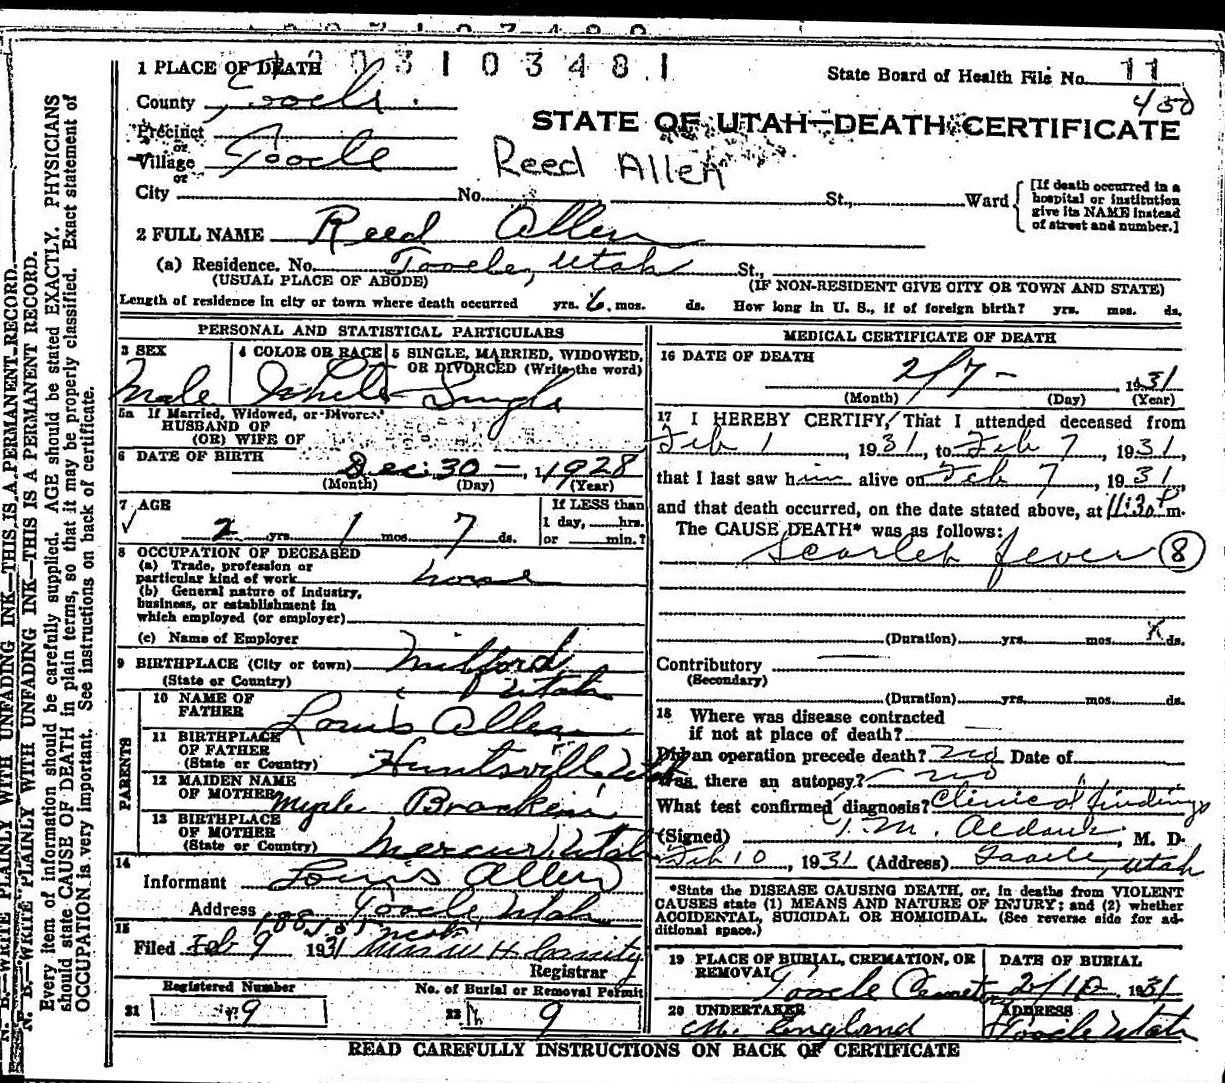 1 PLACE OF DEATH
203103481
State Board of Health File No. 11
450
County Tooele
STATE OF UTAH—DEATH CERTIFICATE
Precinct
or
Village Tooele
Reed Allen
or
City No. St., Ward
[If death occurred in a
hospital or institution
give its NAME instead
of street and number.]
2 FULL NAME Reed Allen
(a) Residence. No. Tooele, Utah St.,
(USUAL PLACE OF ABODE) (IF NON-RESIDENT GIVE CITY OR TOWN AND STATE)
Length of residence in city or town where death occurred yrs. 6 mos. ds. How long in U. S., if of foreign birth? yrs. mos. ds.
PERSONAL AND STATISTICAL PARTICULARS
3 SEX
Male
4 COLOR OR RACE
White
5 SINGLE, MARRIED, WIDOWED,
OR DIVORCED (Write the word)
Single
5a If Married, Widowed, or Divorced
HUSBAND OF
(OR) WIFE OF
6 DATE OF BIRTH
Dec. 30 — 1928
(Month) (Day) (Year)
7 AGE
2 yrs. 1 mos. 7 ds.
If LESS than
1 day, hrs.
or min.?
8 OCCUPATION OF DECEASED
(a) Trade, profession or
particular kind of work none
(b) General nature of industry,
business, or establishment in
which employed (or employer)
(c) Name of Employer
9 BIRTHPLACE (City or town) Milford
(State or Country) Utah
PARENTS
10 NAME OF
FATHER Louis Allen
11 BIRTHPLACE
OF FATHER
(State or Country) Huntsville Utah
12 MAIDEN NAME
OF MOTHER Myrle
13 BIRTHPLACE
OF MOTHER
(State or Country) Mercur, Utah
14
Informant Louis Allen
Address Tooele, Utah
15
Filed Feb 9 1931
Registrar
Registered Number
21 9
No. of Burial or Removal Permit
22 9
MEDICAL CERTIFICATE OF DEATH
16 DATE OF DEATH
2/7 — , 1931
(Month) (Day) (Year)
17 I HEREBY CERTIFY, That I attended deceased from
Feb 1, 1931, to Feb 7, 1931,
that I last saw him alive on Feb 7, 1931,
and that death occurred, on the date stated above, at 11:30 P m.
The CAUSE DEATH* was as follows:
Scarlet fever 8
(Duration) yrs. mos. ds.
Contributory
(Secondary)
(Duration) yrs. mos. ds.
18 Where was disease contracted
if not at place of death?
Did an operation precede death? no Date of
Was there an autopsy? no
What test confirmed diagnosis? Clinical findings
(Signed) T. M. , M. D.
Feb 10, 1931 (Address) Tooele, Utah
*State the DISEASE CAUSING DEATH, or, in deaths from VIOLENT
CAUSES state (1) MEANS AND NATURE OF INJURY; and (2) whether
ACCIDENTAL, SUICIDAL OR HOMICIDAL. (See reverse side for ad-
ditional space.)
19 PLACE OF BURIAL, CREMATION, OR
REMOVAL
Tooele Cemetery
DATE OF BURIAL
2/10 1931
20 UNDERTAKER
England
ADDRESS
Tooele Utah
READ CAREFULLY INSTRUCTIONS ON BACK OF CERTIFICATE
N. B.—WRITE PLAINLY WITH UNFADING INK—THIS IS A PERMANENT RECORD.
N. B.—WRITE PLAINLY WITH UNFADING INK—THIS IS A PERMANENT RECORD.
Every item of information should be carefully supplied. AGE should be stated EXACTLY. PHYSICIANS
should state CAUSE OF DEATH in plain terms, so that it may be properly classified. Exact statement of
OCCUPATION is very important. See instructions on back of certificate.